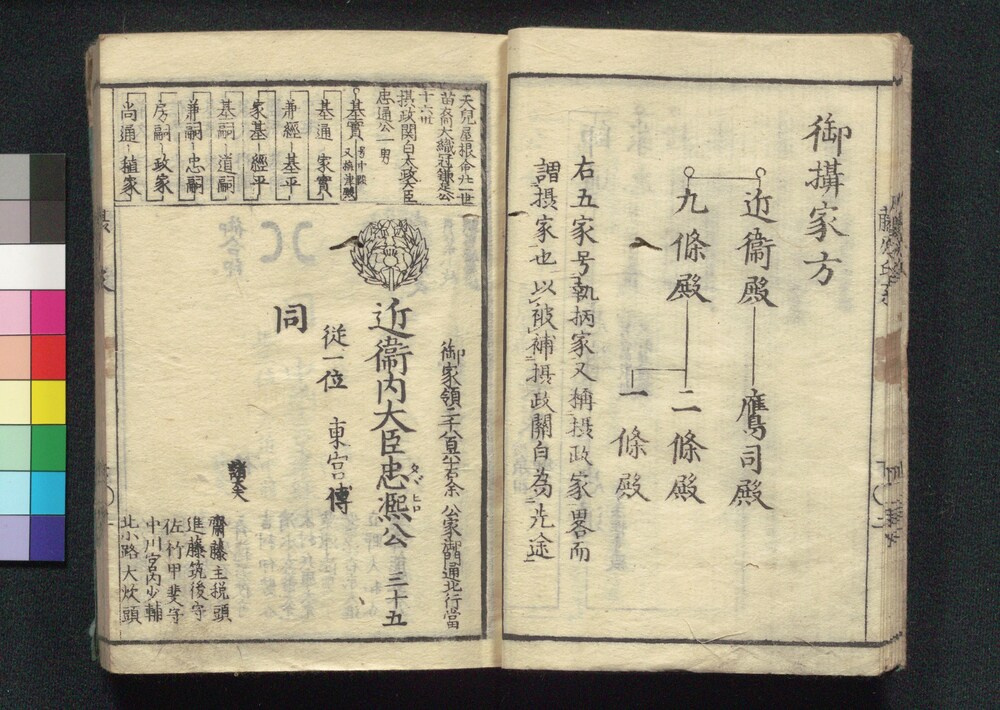 御攝家方
近衞殿
鷹司殿
九條殿
二條殿
一條殿
右五家号執柄家又稱摂政家畧而
謂摂家也以被補摂政關白為先途
天兒屋根命廿一世
苗裔大織冠鎌足公
十六世
摂政関白太政大臣
忠通公一男
基實
号中殿
又摂津殿
基通
家實
兼經
基平
家基
經平
基嗣
道嗣
兼嗣
忠嗣
房嗣
政家
尚通
稙家
御家領二千
石余 公家御門通北行當
近衞内大臣忠凞公 三十五
タヾヒロ
從一位 東宮傅
同
諸大夫
齋藤主税頭
進藤筑後守
佐竹甲斐守
中川宮内少輔
北小路大炊頭